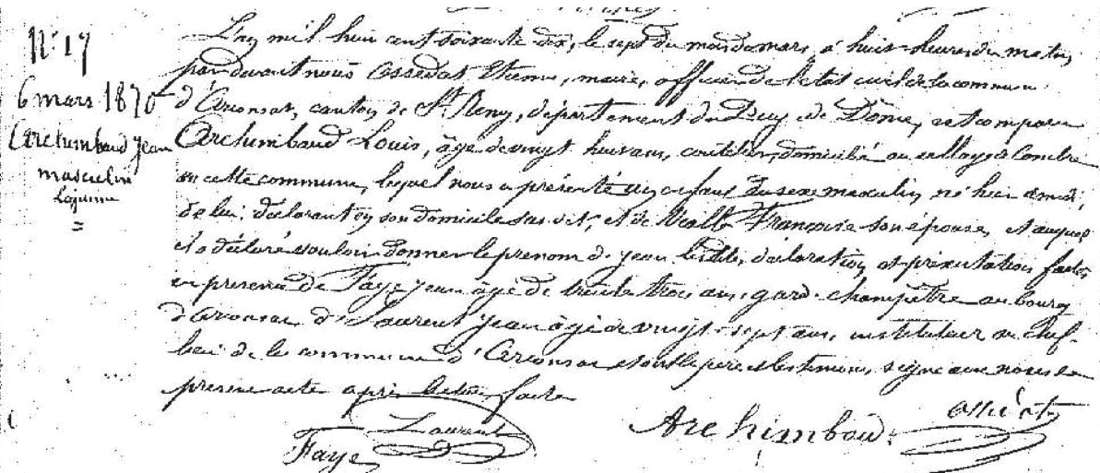 N° 17
6 mars 1870
Archimbaud Jean
masculin
Légitime
L'an mil huit cent soixante dix, le sept du mois de mars, à huit heures du matin
par devant nous Assedat Etienne, maire, officier de l'état civil de la commune
d'Arconsat, canton de St Remy, département du Puy de Dôme, est comparu
Archimbaud Louis, âgé de vingt huit ans, coutelier, domicilié au village de
en cette commune, lequel nous a présenté un enfant du sexe masculin, né hier à midi,
de lui déclarant en son domicile sus dit, et de Françoise son épouse, et auquel
il a déclaré vouloir donner le prénom de Jean les dites déclaration et présentation faites
en présence de Faye Jean âgé de trente trois ans, garde champêtre au bourg
d'Arconsat de Laurent Jean âgé de vingt-sept ans, instituteur au chef-
lieu de la commune d'Arconsat et ont le père et les témoins signé avec nous le
présent acte après lecture faite
Laurent
Faye
Archimbaud